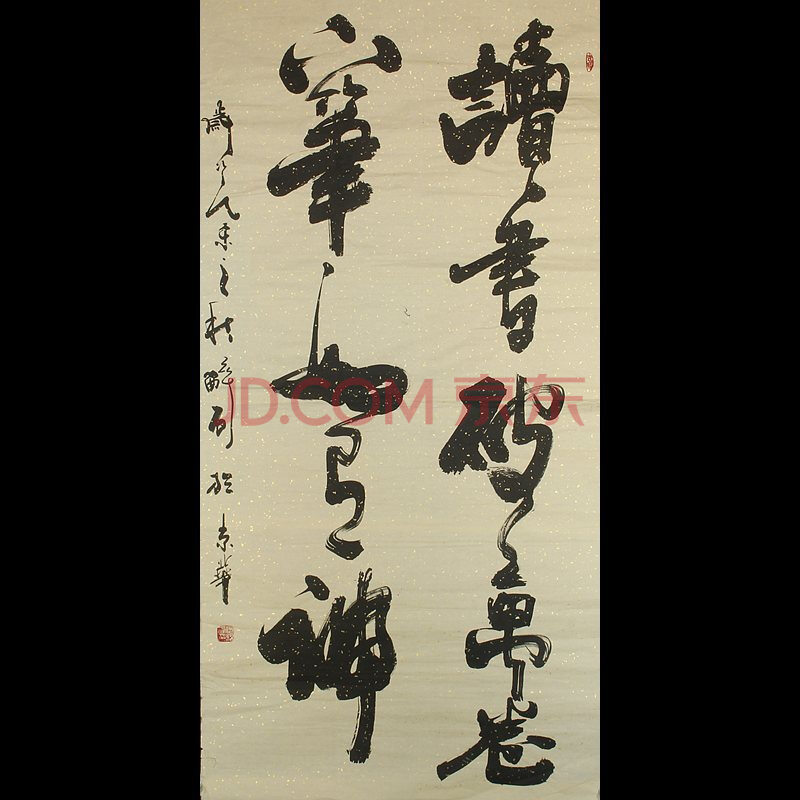 讀書破萬卷
下筆如有神
之秋 於京華
JD.COM 京东